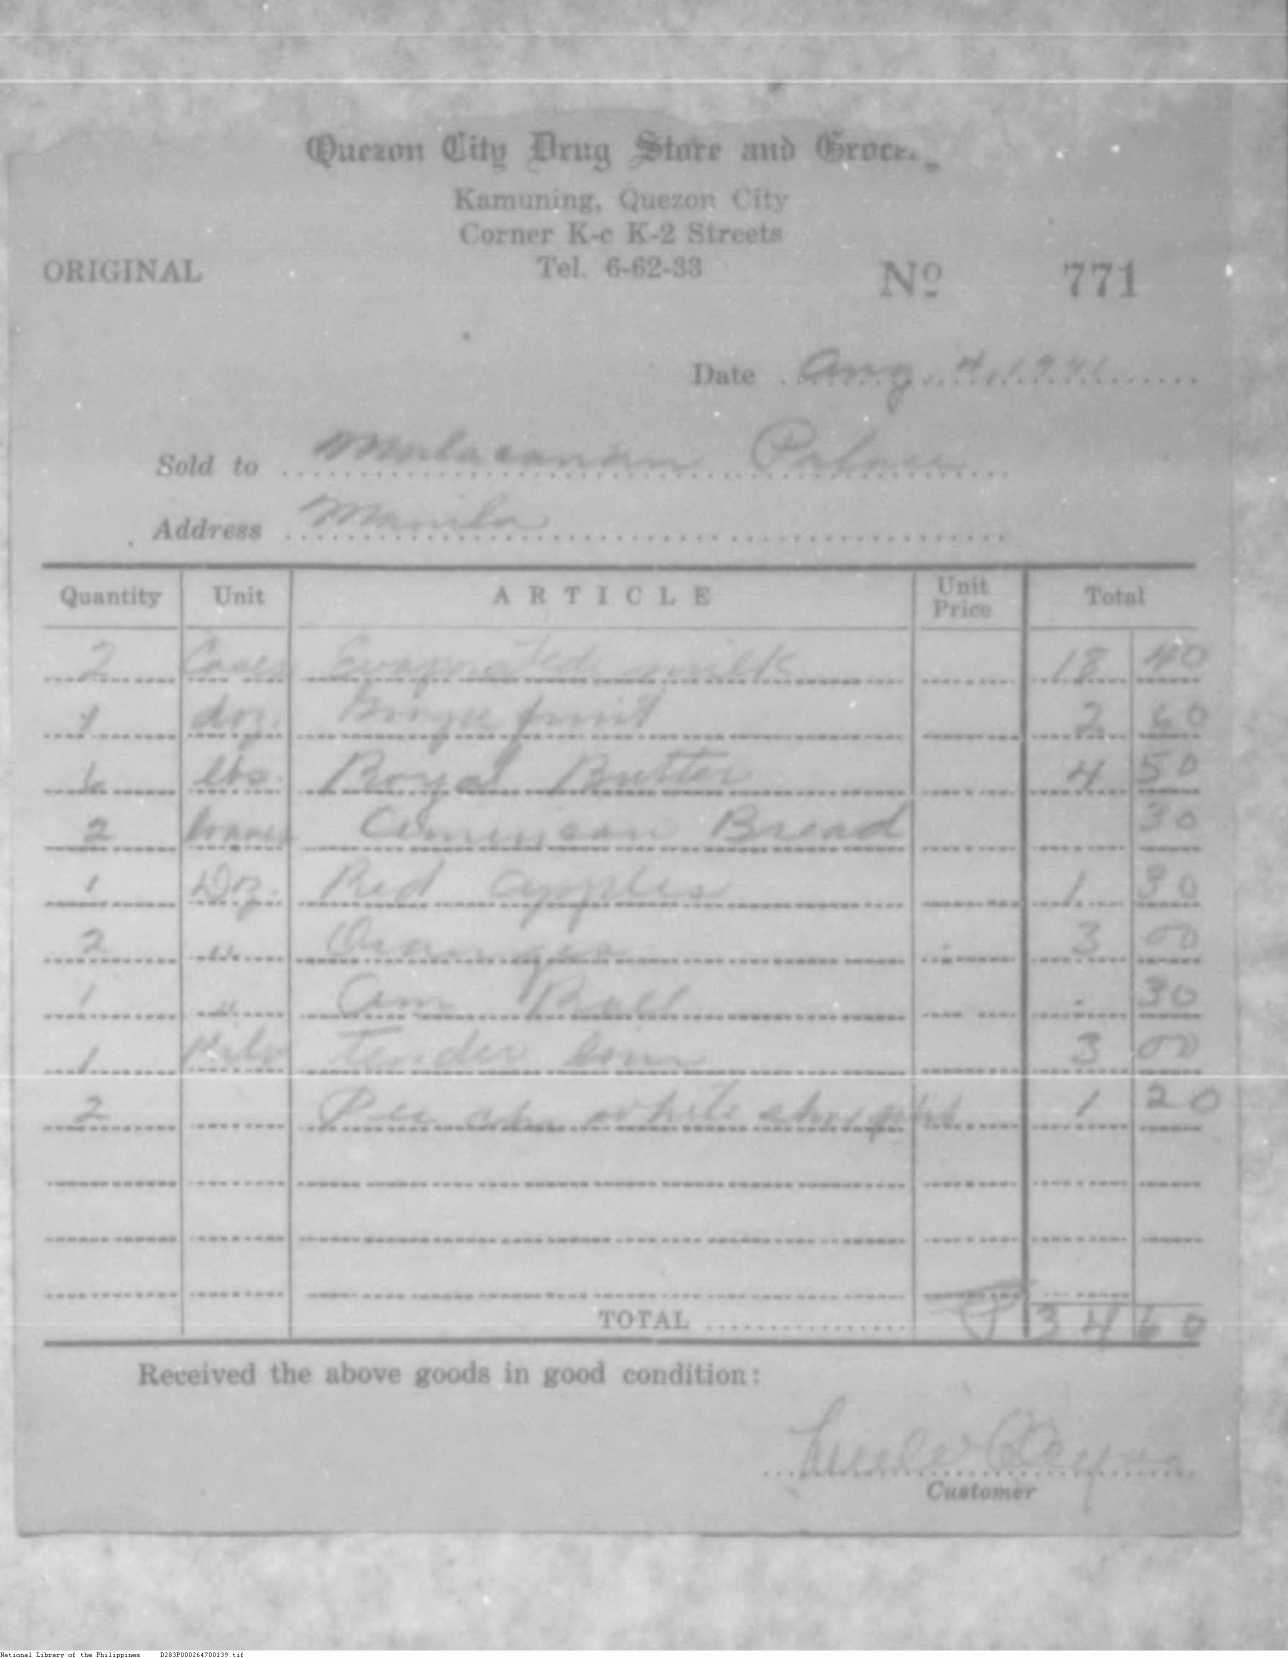 Quezon City Drug Store and Groce.
Kamuning, Quezon City
Corner K-c K-2 Streets
ORIGINAL Tel. 6-62-33 Nº 771
Date Aug. 4, 1941
Sold to Malacanan Palace
Address Manila
Quantity Unit ARTICLE Unit Price Total
2 Cases Evaporated milk 18 40
1 doz. fruit 2 60
6 lbs. Royal Butter 4 50
2 loaves American Bread 30
1 Doz. Red apples 1 30
2 " Oranges 3 00
1 " Am 30
1 Kilo tender loin 3 00
2 white 1 20
TOTAL ₱ 34 60
Received the above goods in good condition:
Customer
National Library of the Philippines D283P000264700139.tif